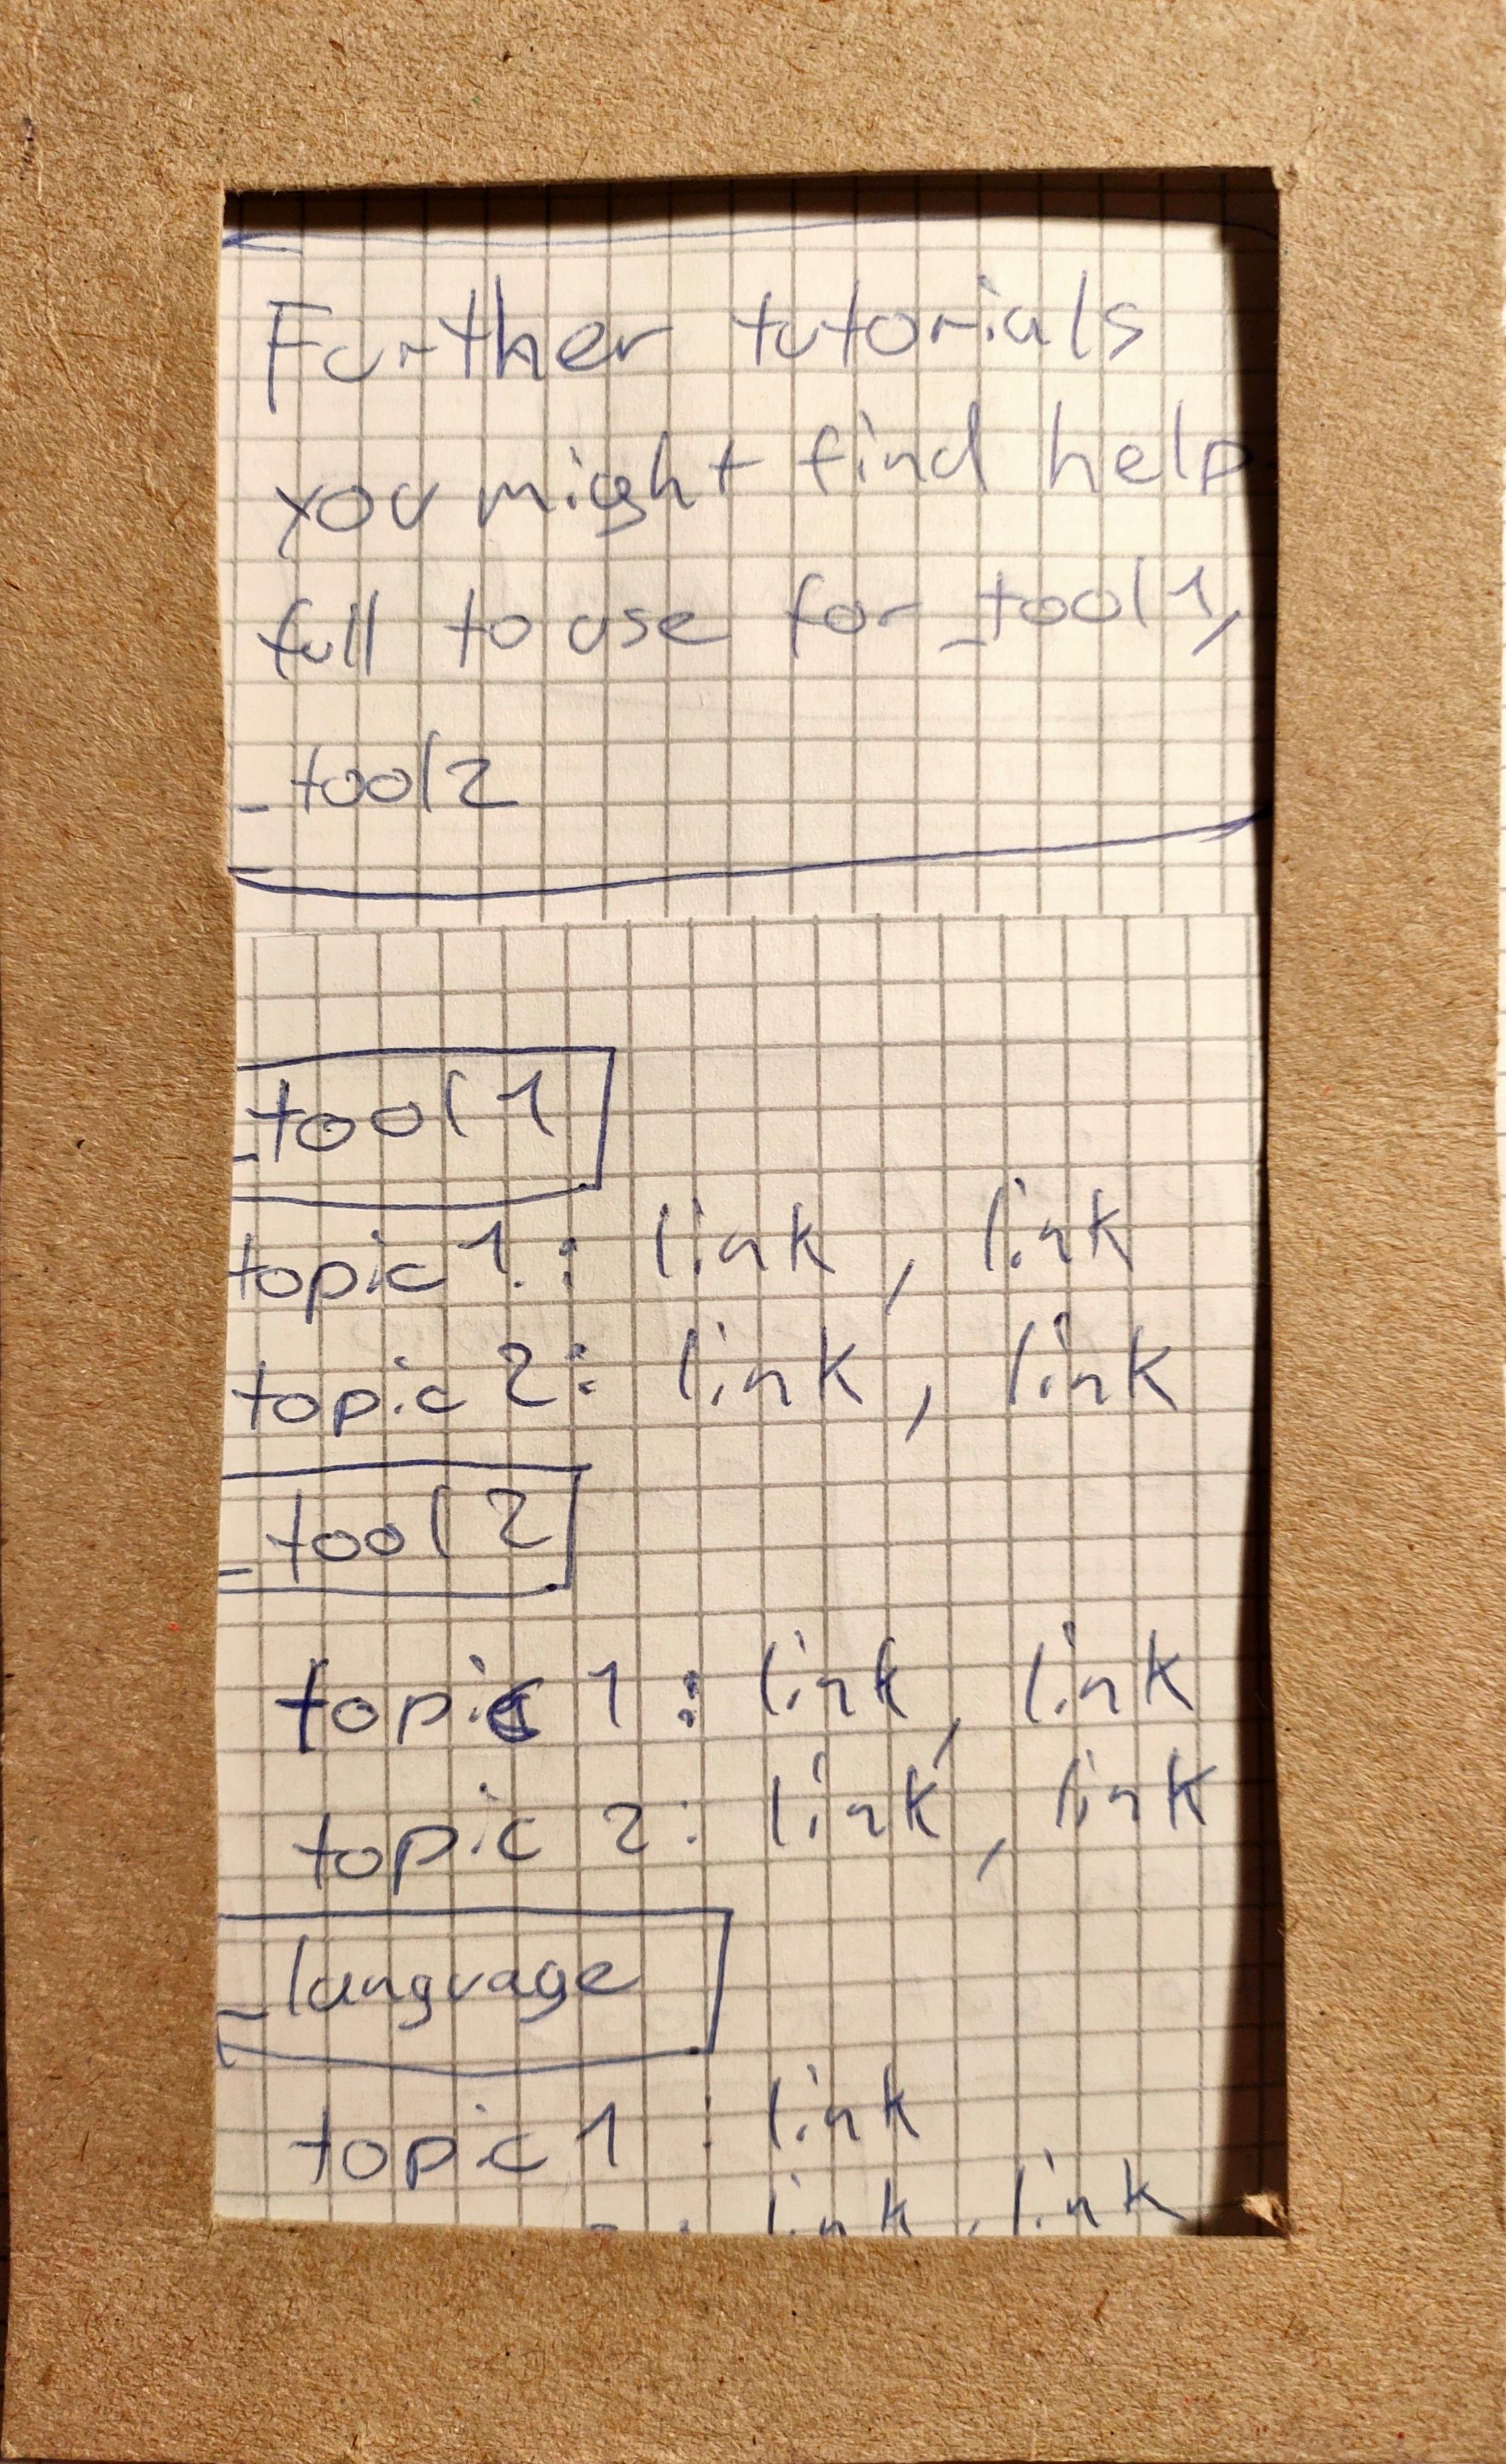 Further tutorials
you might find help
full to use for _tool1,
_tool2
_tool1
topic 1 : link, link
topic 2: link, link
_tool2
topic 1 : link, link
topic 2: link, link
_language
topic 1 : link
: link, link